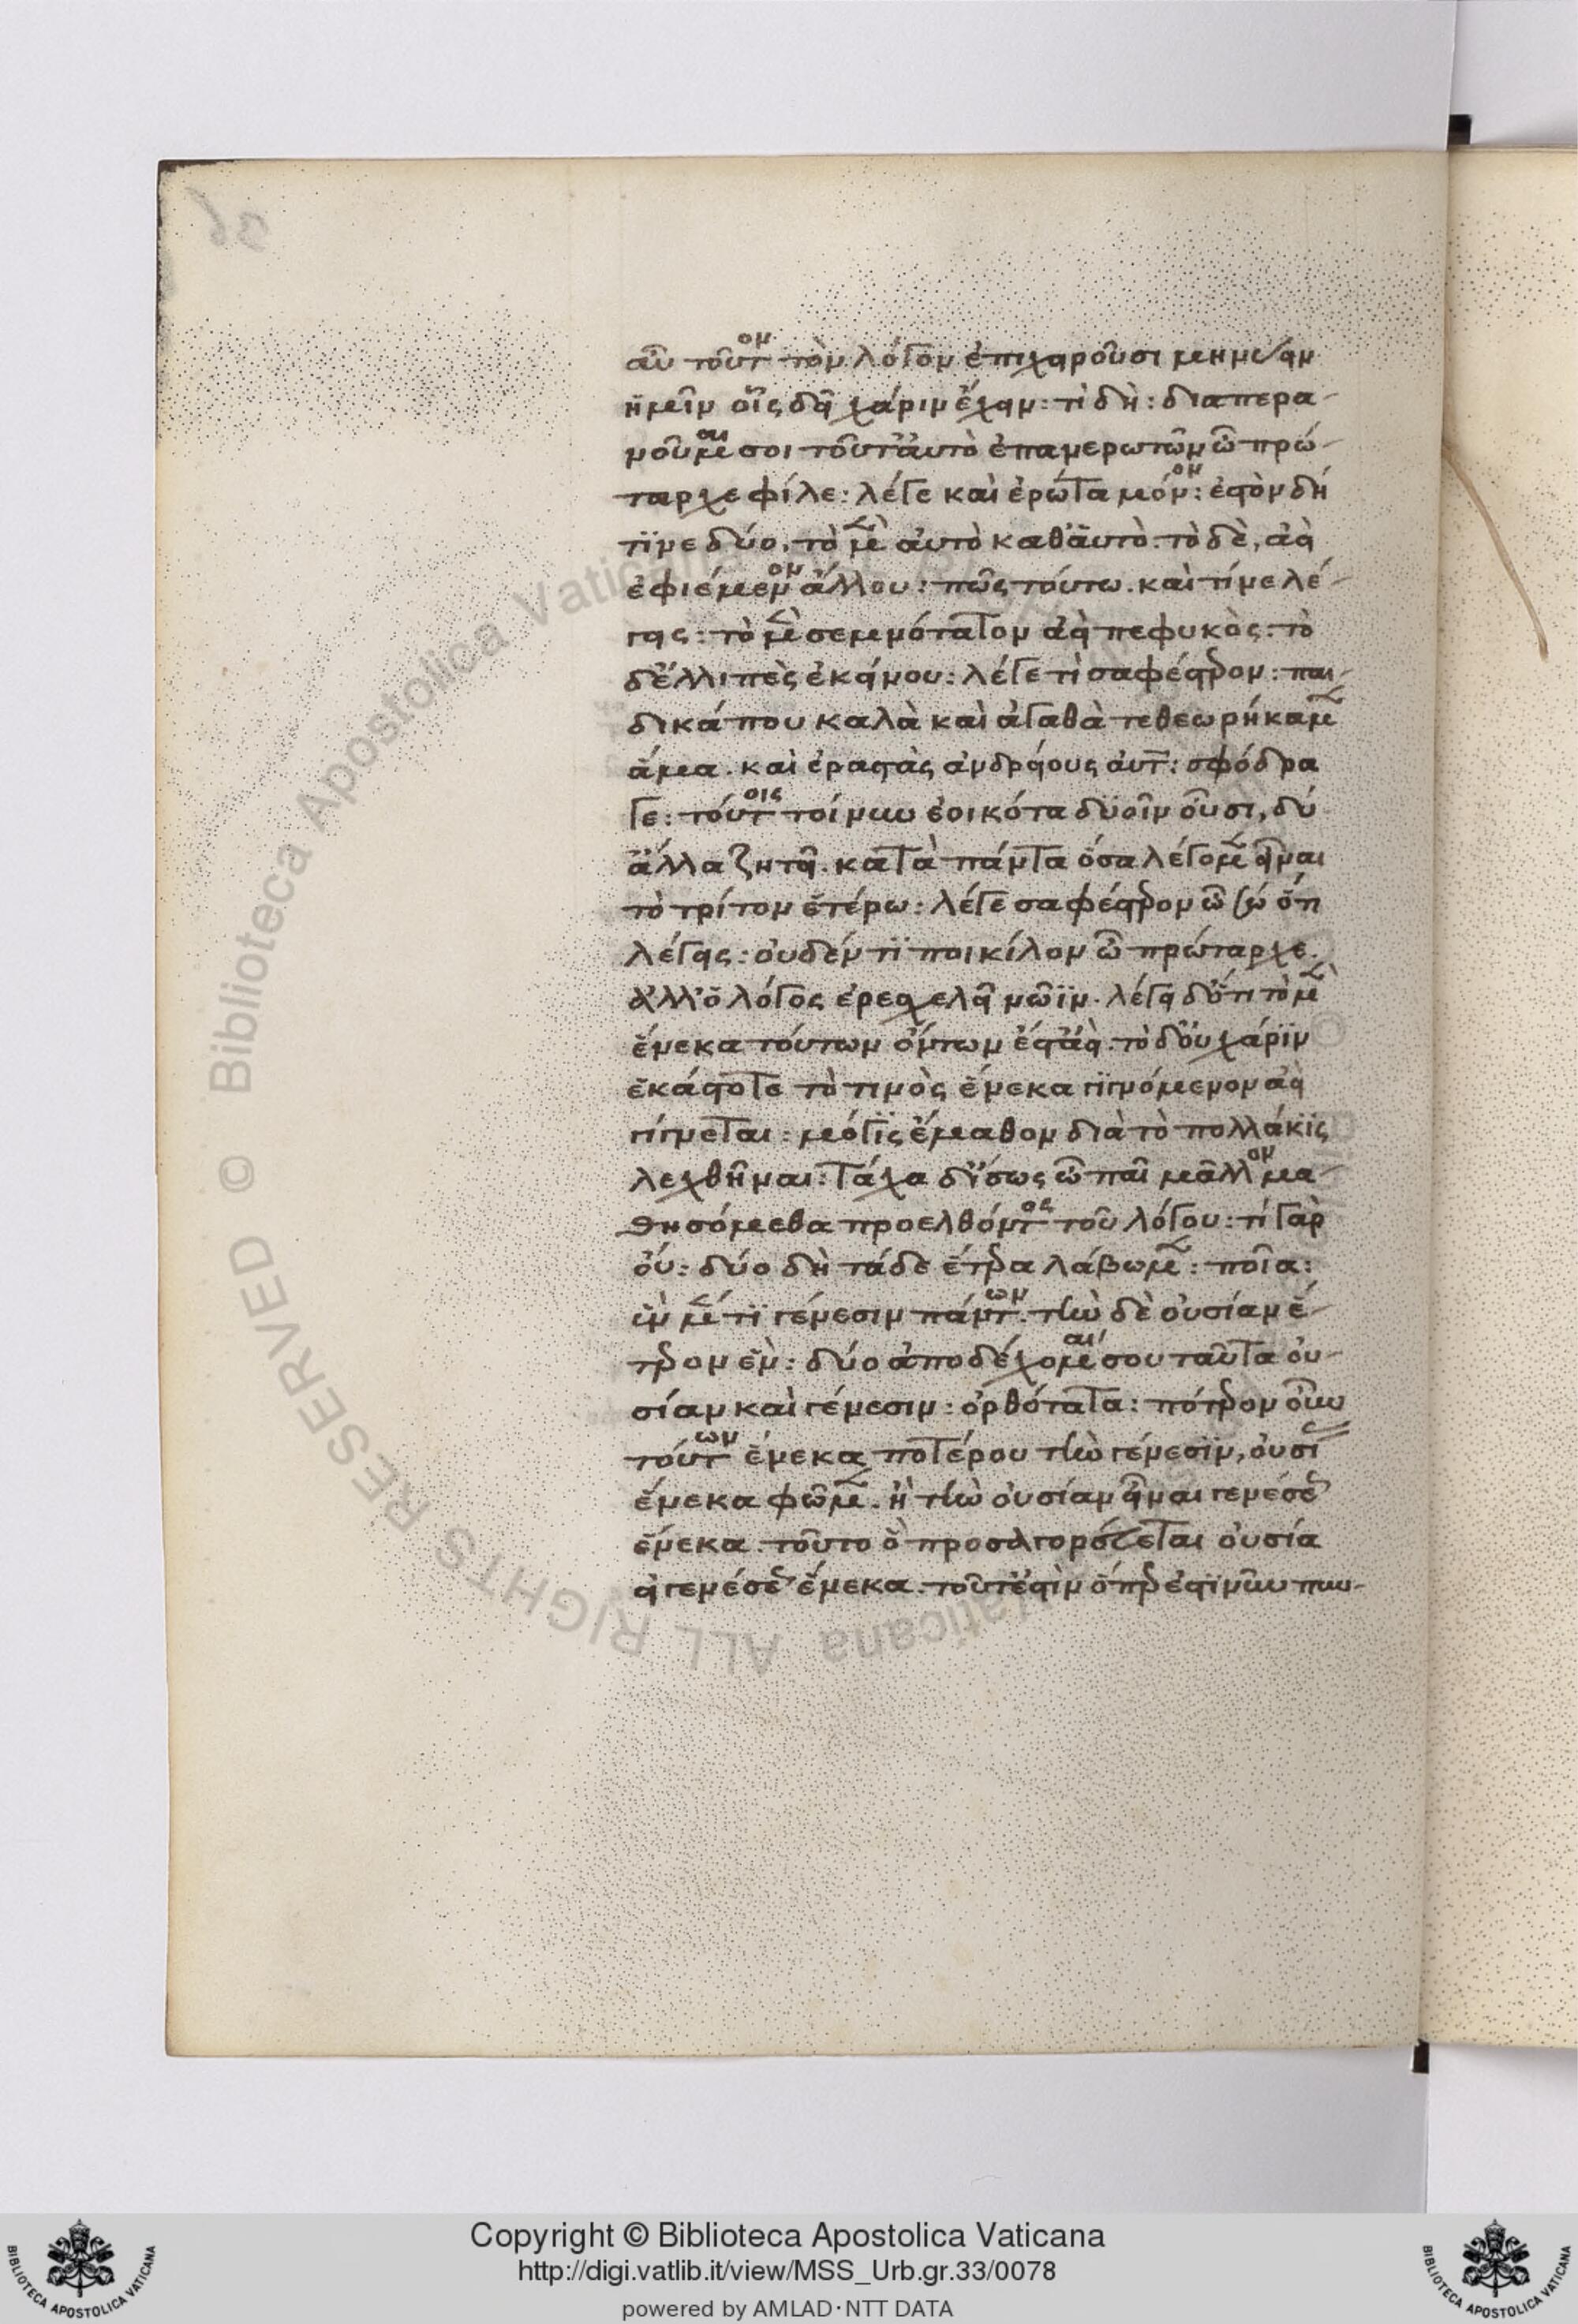 αὖ τοῦτον τὸν λόγον ἐπιχειροῦσι μηνύειν
ἡμῖν οἷς δεῖ χάριν ἔχειν: τί δή: διαπερα-
νοῦμαί σοι τοῦτ' αὐτὸ ἐπανερωτῶν ὦ πρώ-
ταρχε φίλε: λέγε καὶ ἐρώτα μόνον: ἐστὸν δή
τινε δύο, τὸ μὲν αὐτὸ καθ' αὑτὸ. τὸ δὲ, ἀεὶ
ἐφιέμενον ἄλλου: πῶς τούτω. καὶ τίνε λέ-
γεις: τὸ μὲν σεμνότατον ἀεὶ πεφυκὸς: τὸ
δ' ἐλλιπὲς ἐκείνου: λέγε τι σαφέστερον: παι-
δικά που καλὰ καὶ ἀγαθὰ τεθεωρήκαμεν
ἅμα. καὶ ἐραστὰς ἀνδρείους αὐτ: σφόδρα
γε: τούτοις τοίνυν ἐοικότα δυοῖν οὖσι, δύ
ἄλλα ζήτει. κατὰ πάντα ὅσα λέγομεν εἶναι
τὸ τρίτον ἑτέρω: λέγε σαφέστερον ὦ σώ ὅτι
λέγεις: οὐδέν τι ποικίλον ὦ πρώταρχε.
ἀλλ' ὁ λόγος ἐρεσχελεῖ νῶϊν. λέγει δ' ὅτι τὸ μὲν
ἕνεκα τούτων ὄντων ἔστ' ἀεὶ. τὸ δ' οὗ χάριν
ἑκάστοτε τὸ τινὸς ἕνεκα γιγνόμενον ἀεὶ
γίγνεται: μόγις ἔμαθον διὰ τὸ πολλάκις
λεχθῆναι: τάχα δ' ἴσως ὦ παῖ μᾶλλον μα-
θησόμεθα προελθόντος τοῦ λόγου: τί γὰρ
οὔ: δύο δὴ τάδε ἕτερα λάβωμεν: ποῖα:
ἓν μέν τι γένεσιν πάντων. τὴν δὲ οὐσίαν ἕ-
τερον ἕν: δύο ἀποδέχομαί σου ταῦτα οὐ-
σίαν καὶ γένεσιν: ὀρθότατα: πότερον οὖν
τούτων ἕνεκα ποτέρου τὴν γένεσιν, οὐσίας
ἕνεκα φῶμεν. ἢ τὴν οὐσίαν εἶναι γενέσεως
ἕνεκα. τοῦτο ὃ προσαγορεύεται οὐσία
εἰ γενέσεως ἕνεκα. τοῦτ' ἔστιν ὅπερ ἐστὶ νῦν πυν-
Copyright © Biblioteca Apostolica Vaticana
http://digi.vatlib.it/view/MSS_Urb.gr.33/0078
powered by AMLAD·NTT DATA
BIBLIOTECA APOSTOLICA VATICANA
BIBLIOTECA APOSTOLICA VATICANA
© Biblioteca Apostolica Vaticana ALL RIGHTS RESERVED